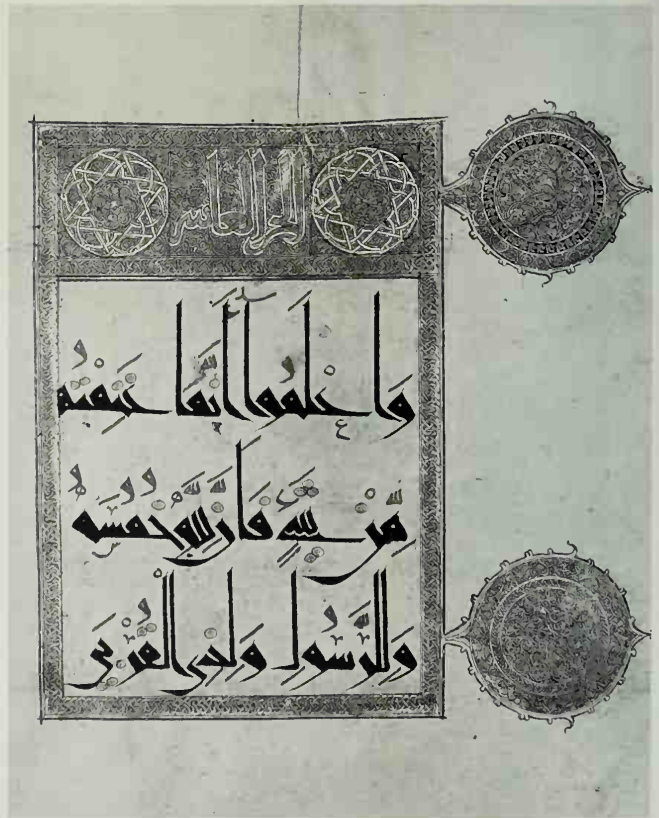 الجزء العاشر
وَاعْلَمُوا أَنَّمَا غَنِمْتُمْ
مِّن شَيْءٍ فَأَنَّ لِلَّهِ خُمُسَهُ
وَلِلرَّسُولِ وَلِذِي الْقُرْبَىٰ